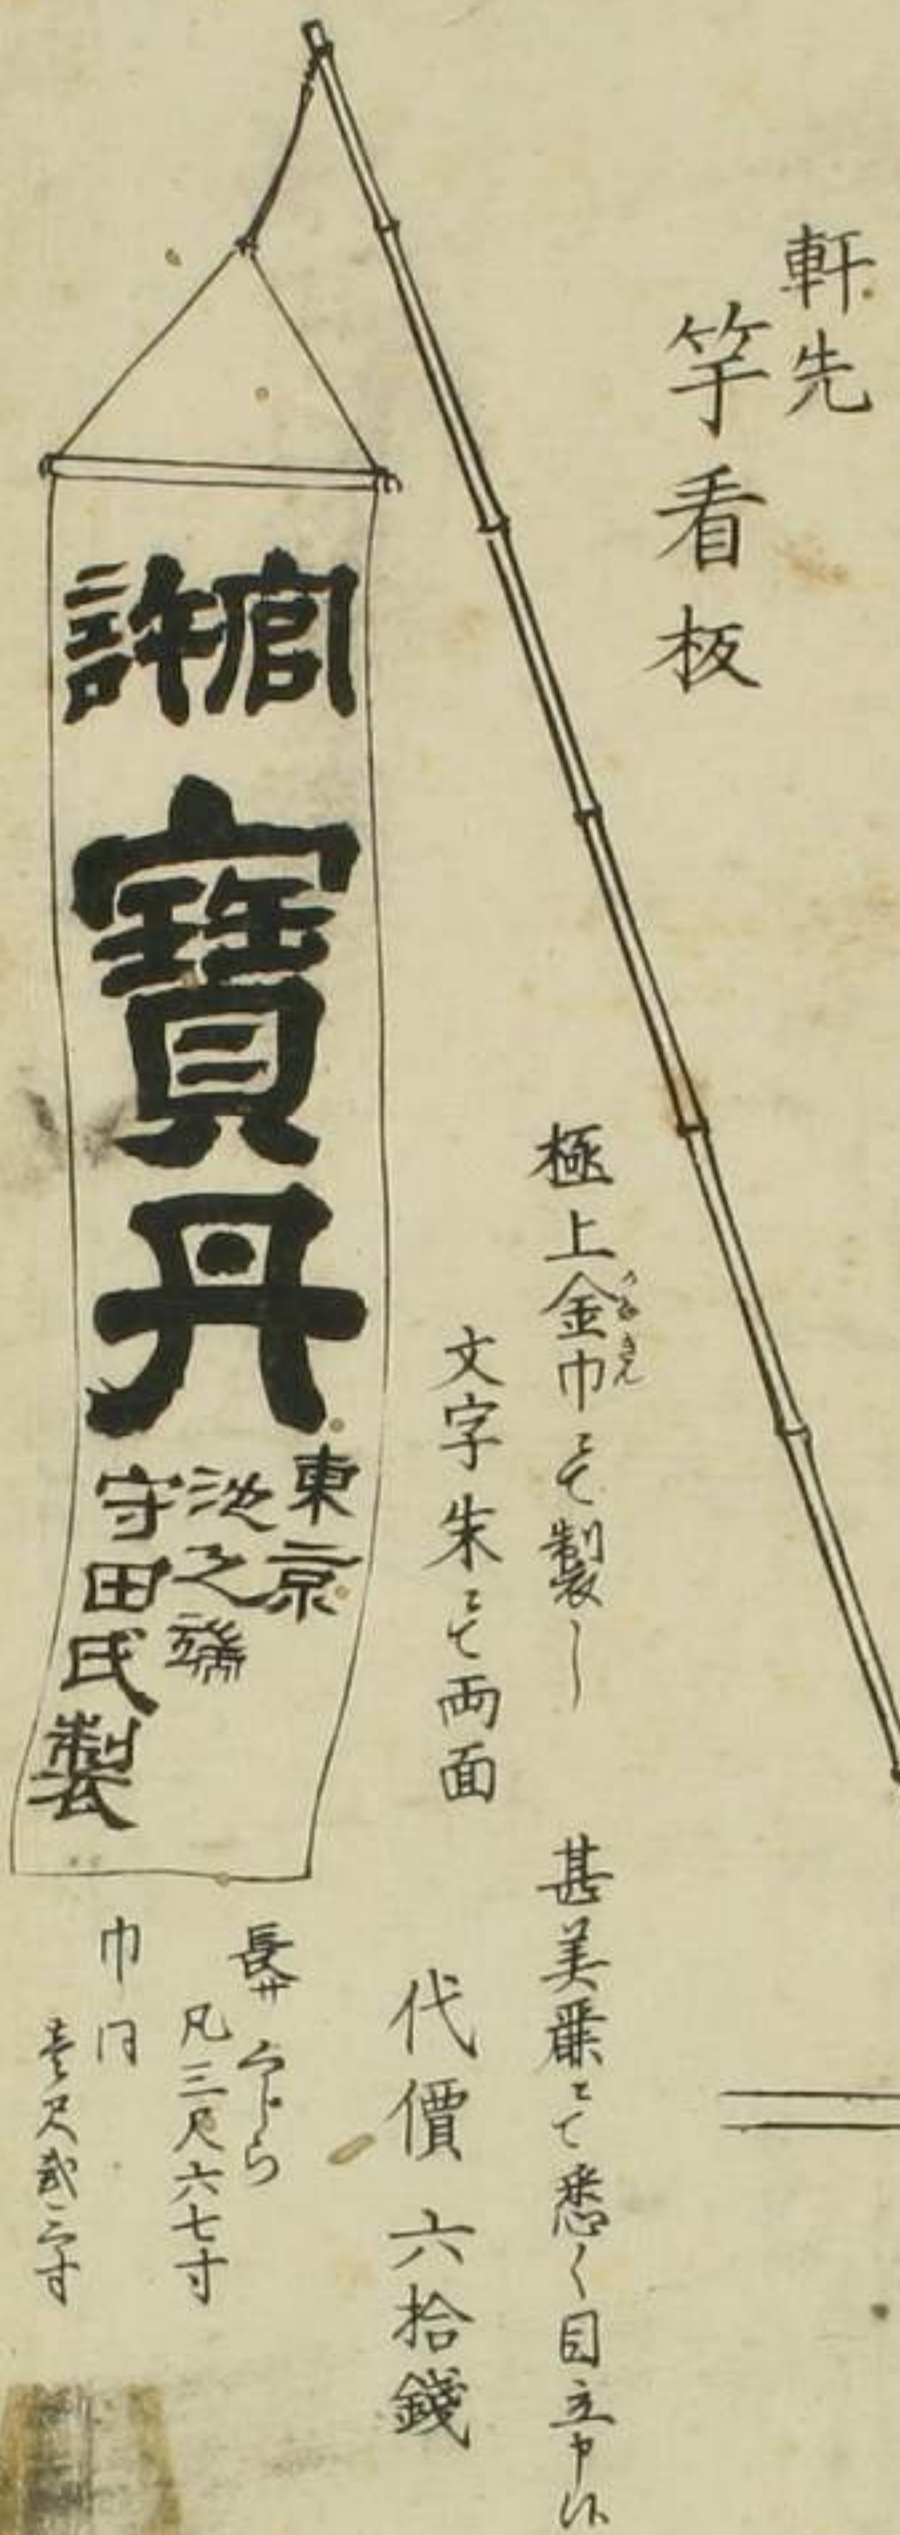 軒先
竿看板
極上金巾にて製し
かなきん
甚美麗にて悉く目立申候
文字朱にて両面
代價 六拾錢
官許
寶丹
東京
池之端
守田氏製
長サ
くじら
凡三尺六七寸
巾同
壱尺弐三寸